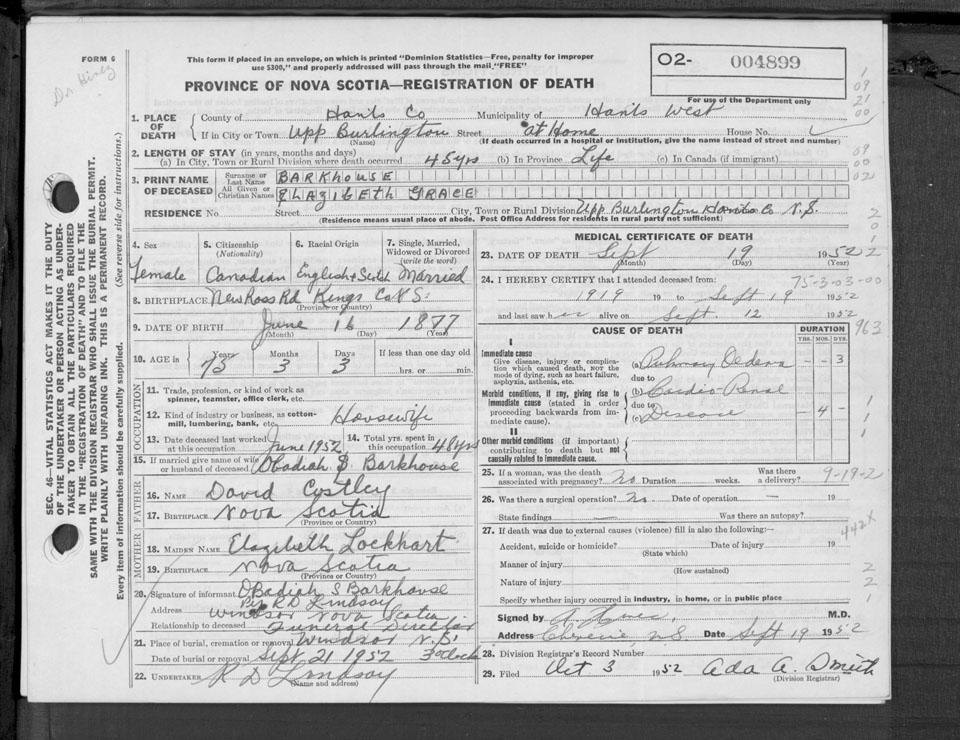 FORM 6
Dr Hines
This form if placed in an envelope, on which is printed "Dominion Statistics—Free, penalty for improper
use $300," and properly addressed will pass through the mail "FREE"
O2- 004899
For use of the Department only
PROVINCE OF NOVA SCOTIA—REGISTRATION OF DEATH
1. PLACE OF DEATH
County of Hants Co Municipality of Hants West
If in City or Town Upp Burlington Street at Home House No.
(Name) (If death occurred in a hospital or institution, give the name instead of street and number)
2. LENGTH OF STAY (in years, months and days)
(a) In City, Town or Rural Division where death occurred 45yrs (b) In Province Life (c) In Canada (if immigrant)
3. PRINT NAME OF DECEASED
Surname or Last Name BARKHOUSE
All Given or Christian Names ELAZIBETH GRACE
RESIDENCE No. Street City, Town or Rural Division Upp Burlington Hants Co N.S.
(Residence means usual place of abode. Post Office Address for residents in rural parts not sufficient)
4. Sex Female
5. Citizenship (Nationality) Canadian
6. Racial Origin English & Scotch
7. Single, Married, Widowed or Divorced (write the word) Married
8. BIRTHPLACE New Ross Rd Kings Co N S.
(Province or Country)
9. DATE OF BIRTH June 16 1877
(Month) (Day) (Year)
10. AGE in Years Months Days If less than one day old
75 3 3 hrs. or min.
OCCUPATION
11. Trade, profession, or kind of work as
spinner, teamster, office clerk, etc.
12. Kind of industry or business, as cotton-
mill, lumbering, bank, etc. Housewife
13. Date deceased last worked at this occupation June 1952
14. Total yrs. spent in this occupation 48yrs
15. If married give name of wife or husband of deceased Obadiah S Barkhouse
FATHER
16. NAME David Costley
17. BIRTHPLACE Nova Scotia
(Province or Country)
MOTHER
18. MAIDEN NAME Elazibeth Lockhart
19. BIRTHPLACE Nova Scotia
(Province or Country)
20. Signature of informant Obadiah S Barkhouse
Per R D Lindsay
Address Windsor Nova Scotia
Relationship to deceased Funeral Director
21. Place of burial, cremation or removal Windsor N.S.
Date of burial or removal Sept 21 1952 3 oclock
22. UNDERTAKER R D Lindsay
(Name and address)
MEDICAL CERTIFICATE OF DEATH
23. DATE OF DEATH Sept 19 1952
(Month) (Day) (Year)
24. I HEREBY CERTIFY that I attended deceased from: 75-3-03-00
1919 19 to Sept 19 1952
and last saw her alive on Sept. 12 1952
963
CAUSE OF DEATH
DURATION
YRS. MOS. DYS.
I
Immediate cause
Give disease, injury or complica-
tion which caused death, NOT the
mode of dying, such as heart failure,
asphyxia, asthenia, etc.
(a) Pulmonary Oedema – – 3
due to
Morbid conditions, if any, giving rise to
immediate cause (stated in order
proceeding backwards from im-
mediate cause).
(b) Cardio Renal
due to
(c) Disease – 4 –
II
Other morbid conditions (if important)
contributing to death but not
causally related to immediate cause.
25. If a woman, was the death associated with pregnancy? no Duration weeks. Was there a delivery? 9-19-2
26. Was there a surgical operation? no. Date of operation — 19
State findings — Was there an autopsy?
27. If death was due to external causes (violence) fill in also the following:—
442X
Accident, suicide or homicide? Date of injury 19
(State which)
Manner of injury
(How sustained)
Nature of injury
Specify whether injury occurred in industry, in home, or in public place
Signed by M.D.
Address Cheverie N.S. Date Sept 19 1952
28. Division Registrar's Record Number
29. Filed Oct 3 1952 Ada A. Smith
(Division Registrar)
SEC. 46—VITAL STATISTICS ACT MAKES IT THE DUTY
OF THE UNDERTAKER OR PERSON ACTING AS UNDER-
TAKER TO OBTAIN ALL THE PARTICULARS REQUIRED
IN THE "REGISTRATION OF DEATH" AND TO FILE THE
SAME WITH THE DIVISION REGISTRAR WHO SHALL ISSUE THE BURIAL PERMIT.
WRITE PLAINLY WITH UNFADING INK. THIS IS A PERMANENT RECORD.
Every item of information should be carefully supplied. (See reverse side for instructions.)
1
09
21
00
09
00
02
2
0
1
2
1
1
1
2
2
1